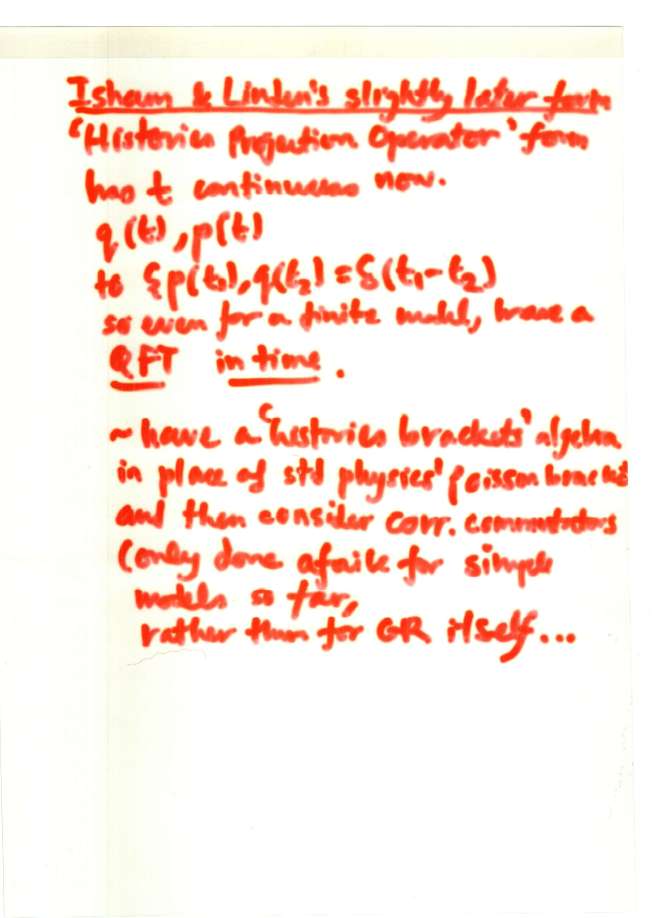 Isham & Linden's slightly later form
'Histories Projection Operator' form
has t continuous now.
q(t), p(t)
to {p(t₁), q(t₂) = δ(t₁-t₂)
so even for a finite model, have a
QFT in time.
~ have a 'histories brackets' algebra
in place of std physics' Poisson bracket
and then consider corr. commutators
(only done afaik for simple
models so far,
rather than for GR itself...